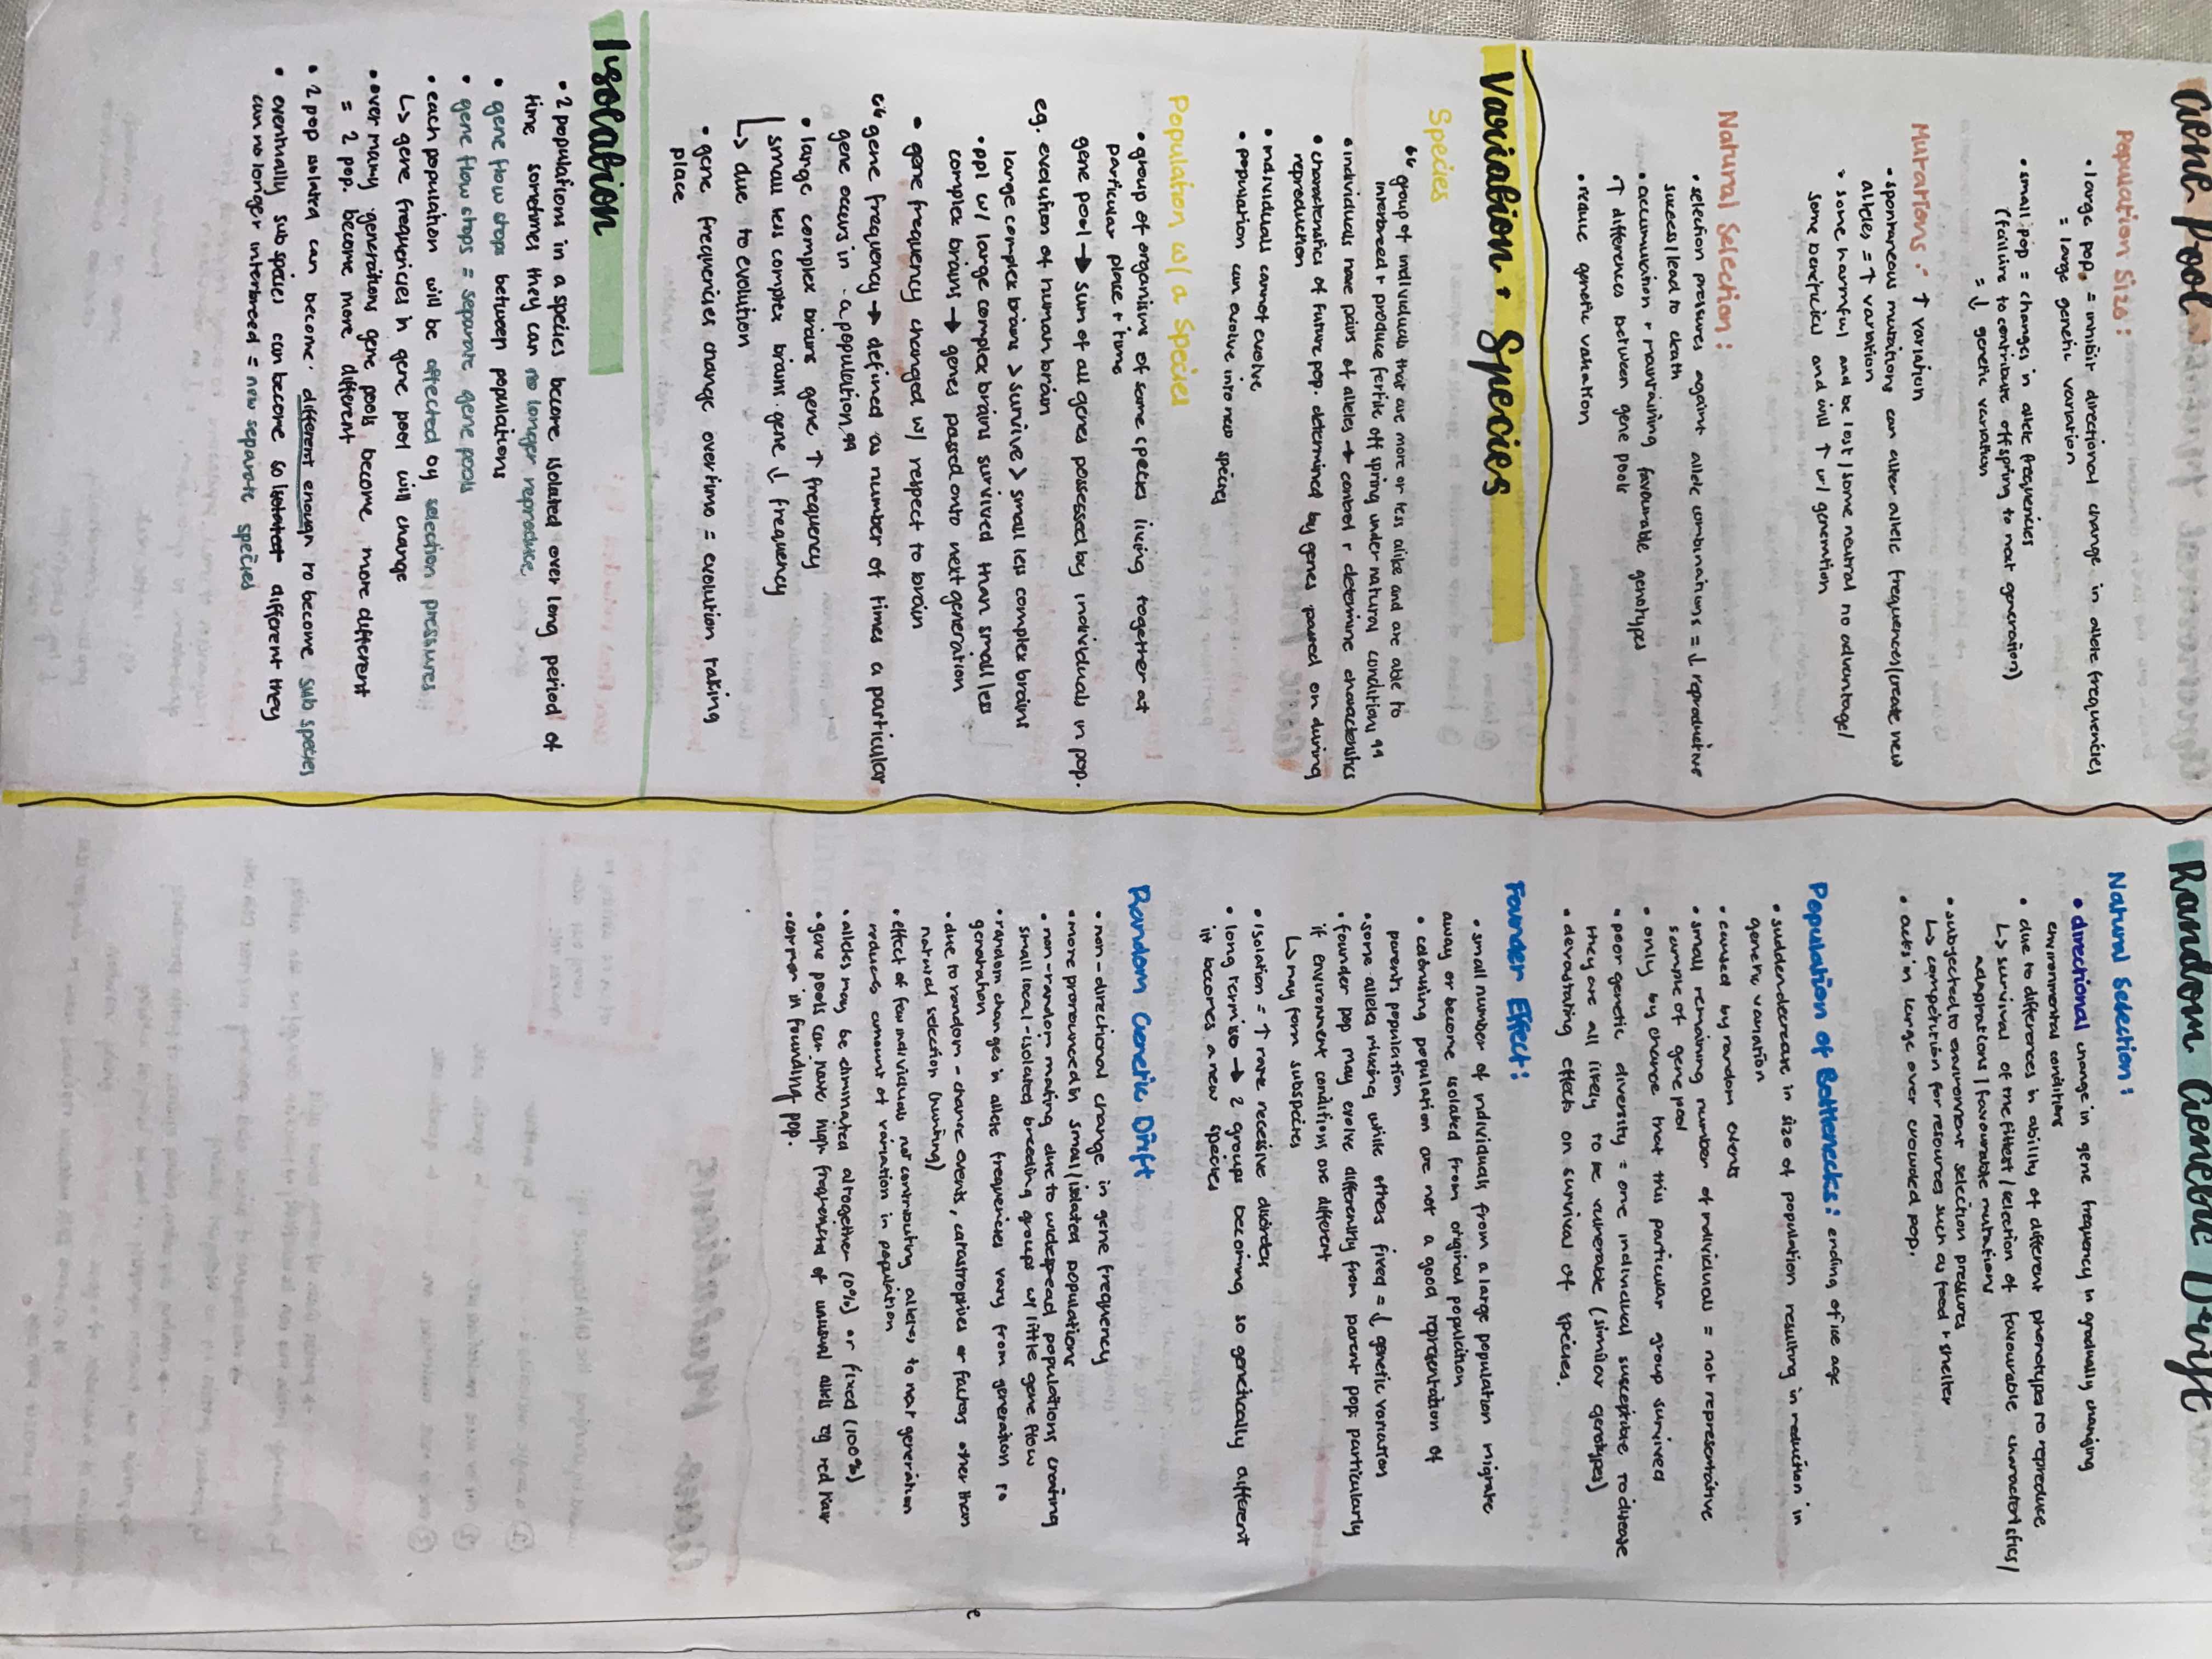 Gene Pool
Population Size:
• large pop. = inhibit directional change in allele frequencies
= large genetic variation
• small pop = changes in allele frequencies
(failure to contribute offspring to next generation)
= ↓ genetic variation
Mutations: ↑ variation
• spontaneous mutations can alter allelic frequences/create new
alleles = ↑ variation
• some harmful and be lost/some neutral no advantage/
some beneficial and will ↑ w/ generation
Natural Selection:
• selection pressures against allele combinations = ↓ reproductive
success/lead to death
• accumulation + maintaining favourable genotypes
↑ differences between gene pools
• reduce genetic variation
Variation + Species
Species
“ group of individuals that are more or less alike and are able to
interbreed + produce fertile off spring under natural conditions ”
• individuals have pairs of alleles → control + determine characteristics
• characteristics of future pop. determined by genes passed on during
reproduction
• individuals cannot evolve
• population can evolve into new species
Population w/ a Species
• group of organisms of same species living together at
particular place + time
gene pool → sum of all genes possessed by individuals in pop.
eg. evolution of human brain
large complex brains > survive > small less complex brains
• ppl w/ large complex brains survived than small less
complex brains → genes passed onto next generation
• gene frequency changed w/ respect to brain
“ gene frequency → defined as number of times a particular
gene occurs in a population ”
• large complex brains gene ↑ frequency
small less complex brains gene ↓ frequency
↳ due to evolution
• gene frequencies change overtime = evolution taking
place
Isolation
• 2 populations in a species become isolated over long period of
time sometimes they can no longer reproduce
• gene flow stops between populations
• gene flow stops = separate gene pools
• each population will be affected by selection pressures
↳ gene frequencies in gene pool will change
• over many generaitons gene pools become more different
= 2 pop. become more different
• 2 pop isolatra can become different enough to become sub species
• eventually sub species can become so isolated different they
can no longer interbreed = new separate species
Random Genetic Drift
Natural Selection:
• directional change in gene frequency in gradually changing
environmental conditions
• due to differences in ability of different phenotypes to reproduce
↳ survival of the fittest / selection of favourable characteristics/
adaptations/favourable mutations
• subjected to environment selection pressures
↳ competition for resources such as food + shelter
• acts in large over crowded pop.
Population of Bottlenecks: ending of ice age
• sudden decrease in size of population resulting in reduction in
genetic variation
• caused by random events
• small remaining number of individuals = not representative
sample of gene pool
• only by chance that this particular group survived
• poor genetic diversity = one individual susceptible to disease
they are all likely to be vulnerable (similar genotypes)
• devastating effects on survival of species.
Founder Effect:
• small number of individuals from a large population migrate
away or become isolated from original population
• colonising population are not a good representation of
parents population
• some alleles missing while others fixed = ↓ genetic variation
• founder pop may evolve differently from parent pop; particularly
if environment conditions are different
↳ may form subspecies
• isolation = ↑ rare recessive disorders
• long term iso → 2 groups becoming so genetically different
it becomes a new species
Random Genetic Drift
• non-directional change in gene frequency
• more pronounced in small/isolated populations
• non-random mating due to widespread populations creating
small local-isolated breeding groups w/ little gene flow
• random changes in allele frequencies vary from generation to
generation
• due to random-chance events, catastrophies or factors other than
natural selection (hunting)
• effect of few individuals not contributing alleles to next generation
reduces amount of variation in population
• alleles may be eliminated altogether (0%) or fixed (100%)
• gene pools can have high frequencies of unusual allels eg red hair
• common in founding pop.